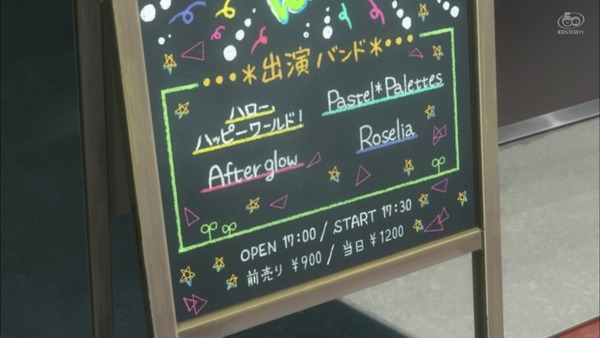 •••*出演バンド*•••
ハロー、
ハッピーワールド!
Pastel*Palettes
Afterglow
Roselia
OPEN 17:00 / START 17:30
前売り ¥900 / 当日 ¥1200